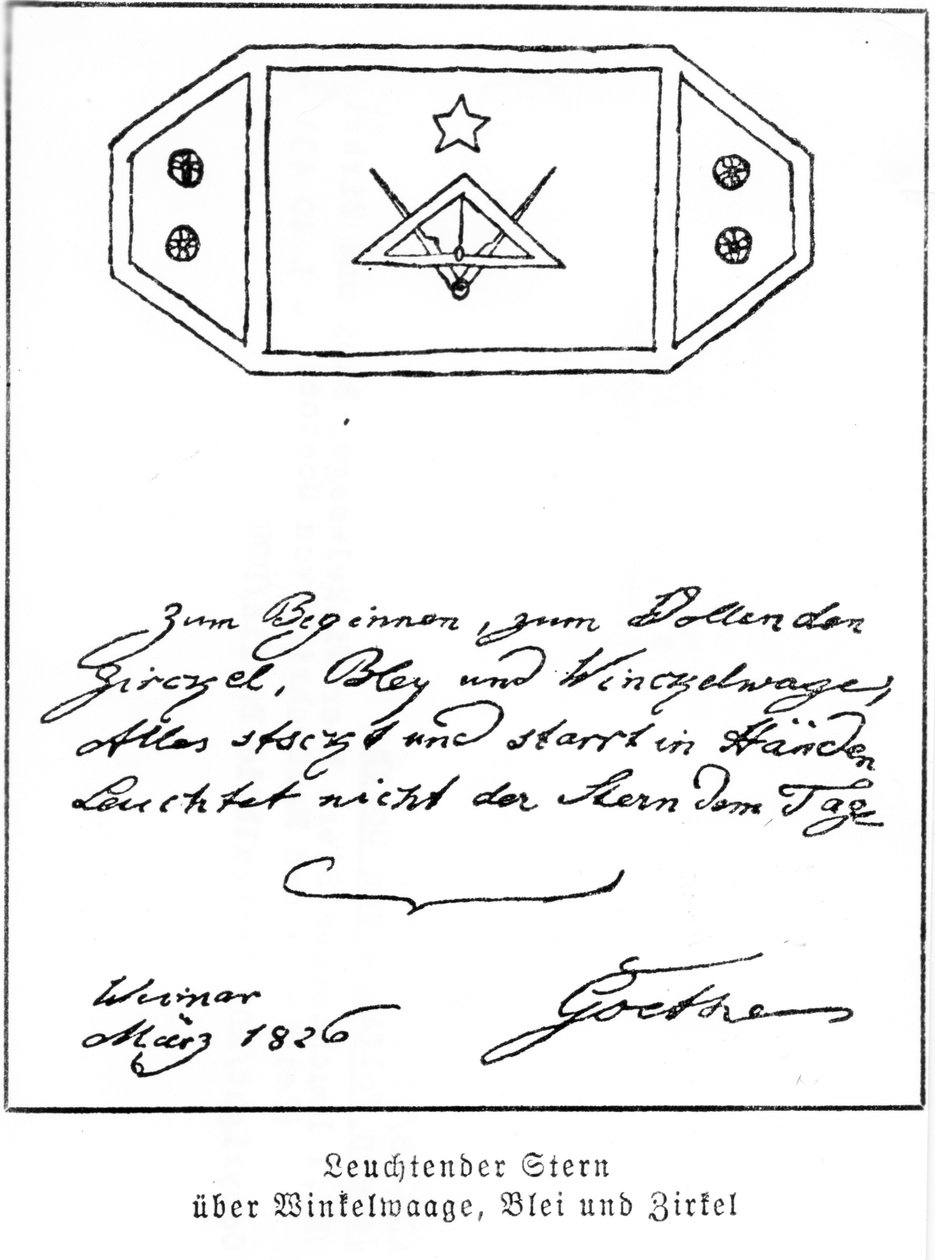 Zum Beginnen, zum Vollenden
Zirckel, Bley und Winckelwage,
Alles stockt und starrt in Händen
Leuchtet nicht der Stern dem Tage
Weimar
März 1826
Goethe
Leuchtender Stern
über Winkelwaage, Blei und Zirkel